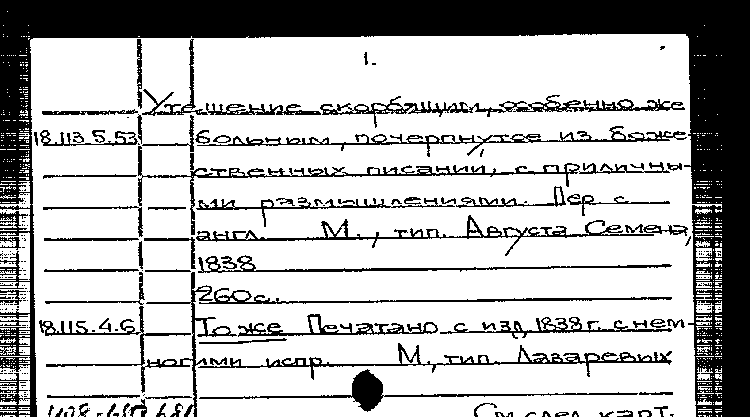 1.
Утешение скорбящим, особенно же
18.113.5.53 больным, почерпнутое из боже-
ственных писаний, с приличны-
ми размышлениями. Пер с
англ. М., тип. Августа Семена,
1838
260с.
18.115.4.6. То же Печатано с изд. 1838г. с нем-
ногими испр. М., тип. Лазаревых
См. след. карт.